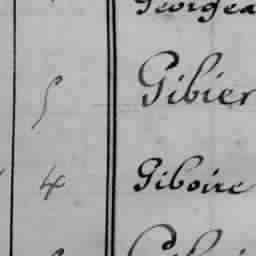 5 Gibier
4 Giboire